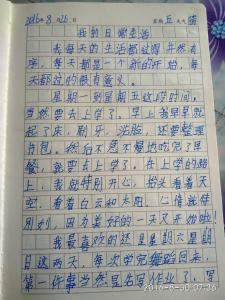 2016年8月26日 星期五 天气晴
我的日常生活
我每天的生活都过得井然有
序,每天都是一个新的开始,每
天都过的很有意义。
星期一到星期五这段时间,
当然要去上学了。早上我早早就
起了床,刷牙,洗脸,还要整理
书包。然后不急不慢地吃完了早
餐,就要去上学了。在上学的路
上,我就特别开心,抬头看着天
空,看着白云和太阳,心情就特
别好,因为美好的一天又开始啦!
我最喜欢的还是星期六星期
日这两天,每次学完舞蹈回来,
第一件事当然是先写作业了,写
2016-8-30 07:36